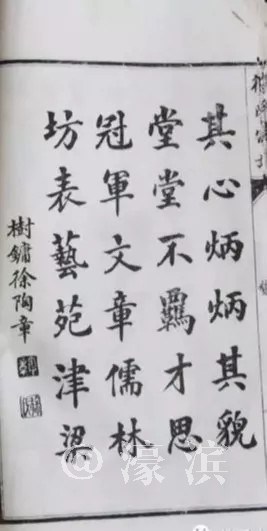 其心炳炳其貌
堂堂不羈才思
冠軍文章儒林
坊表藝苑津梁
樹鏞徐陶章
@濠滨